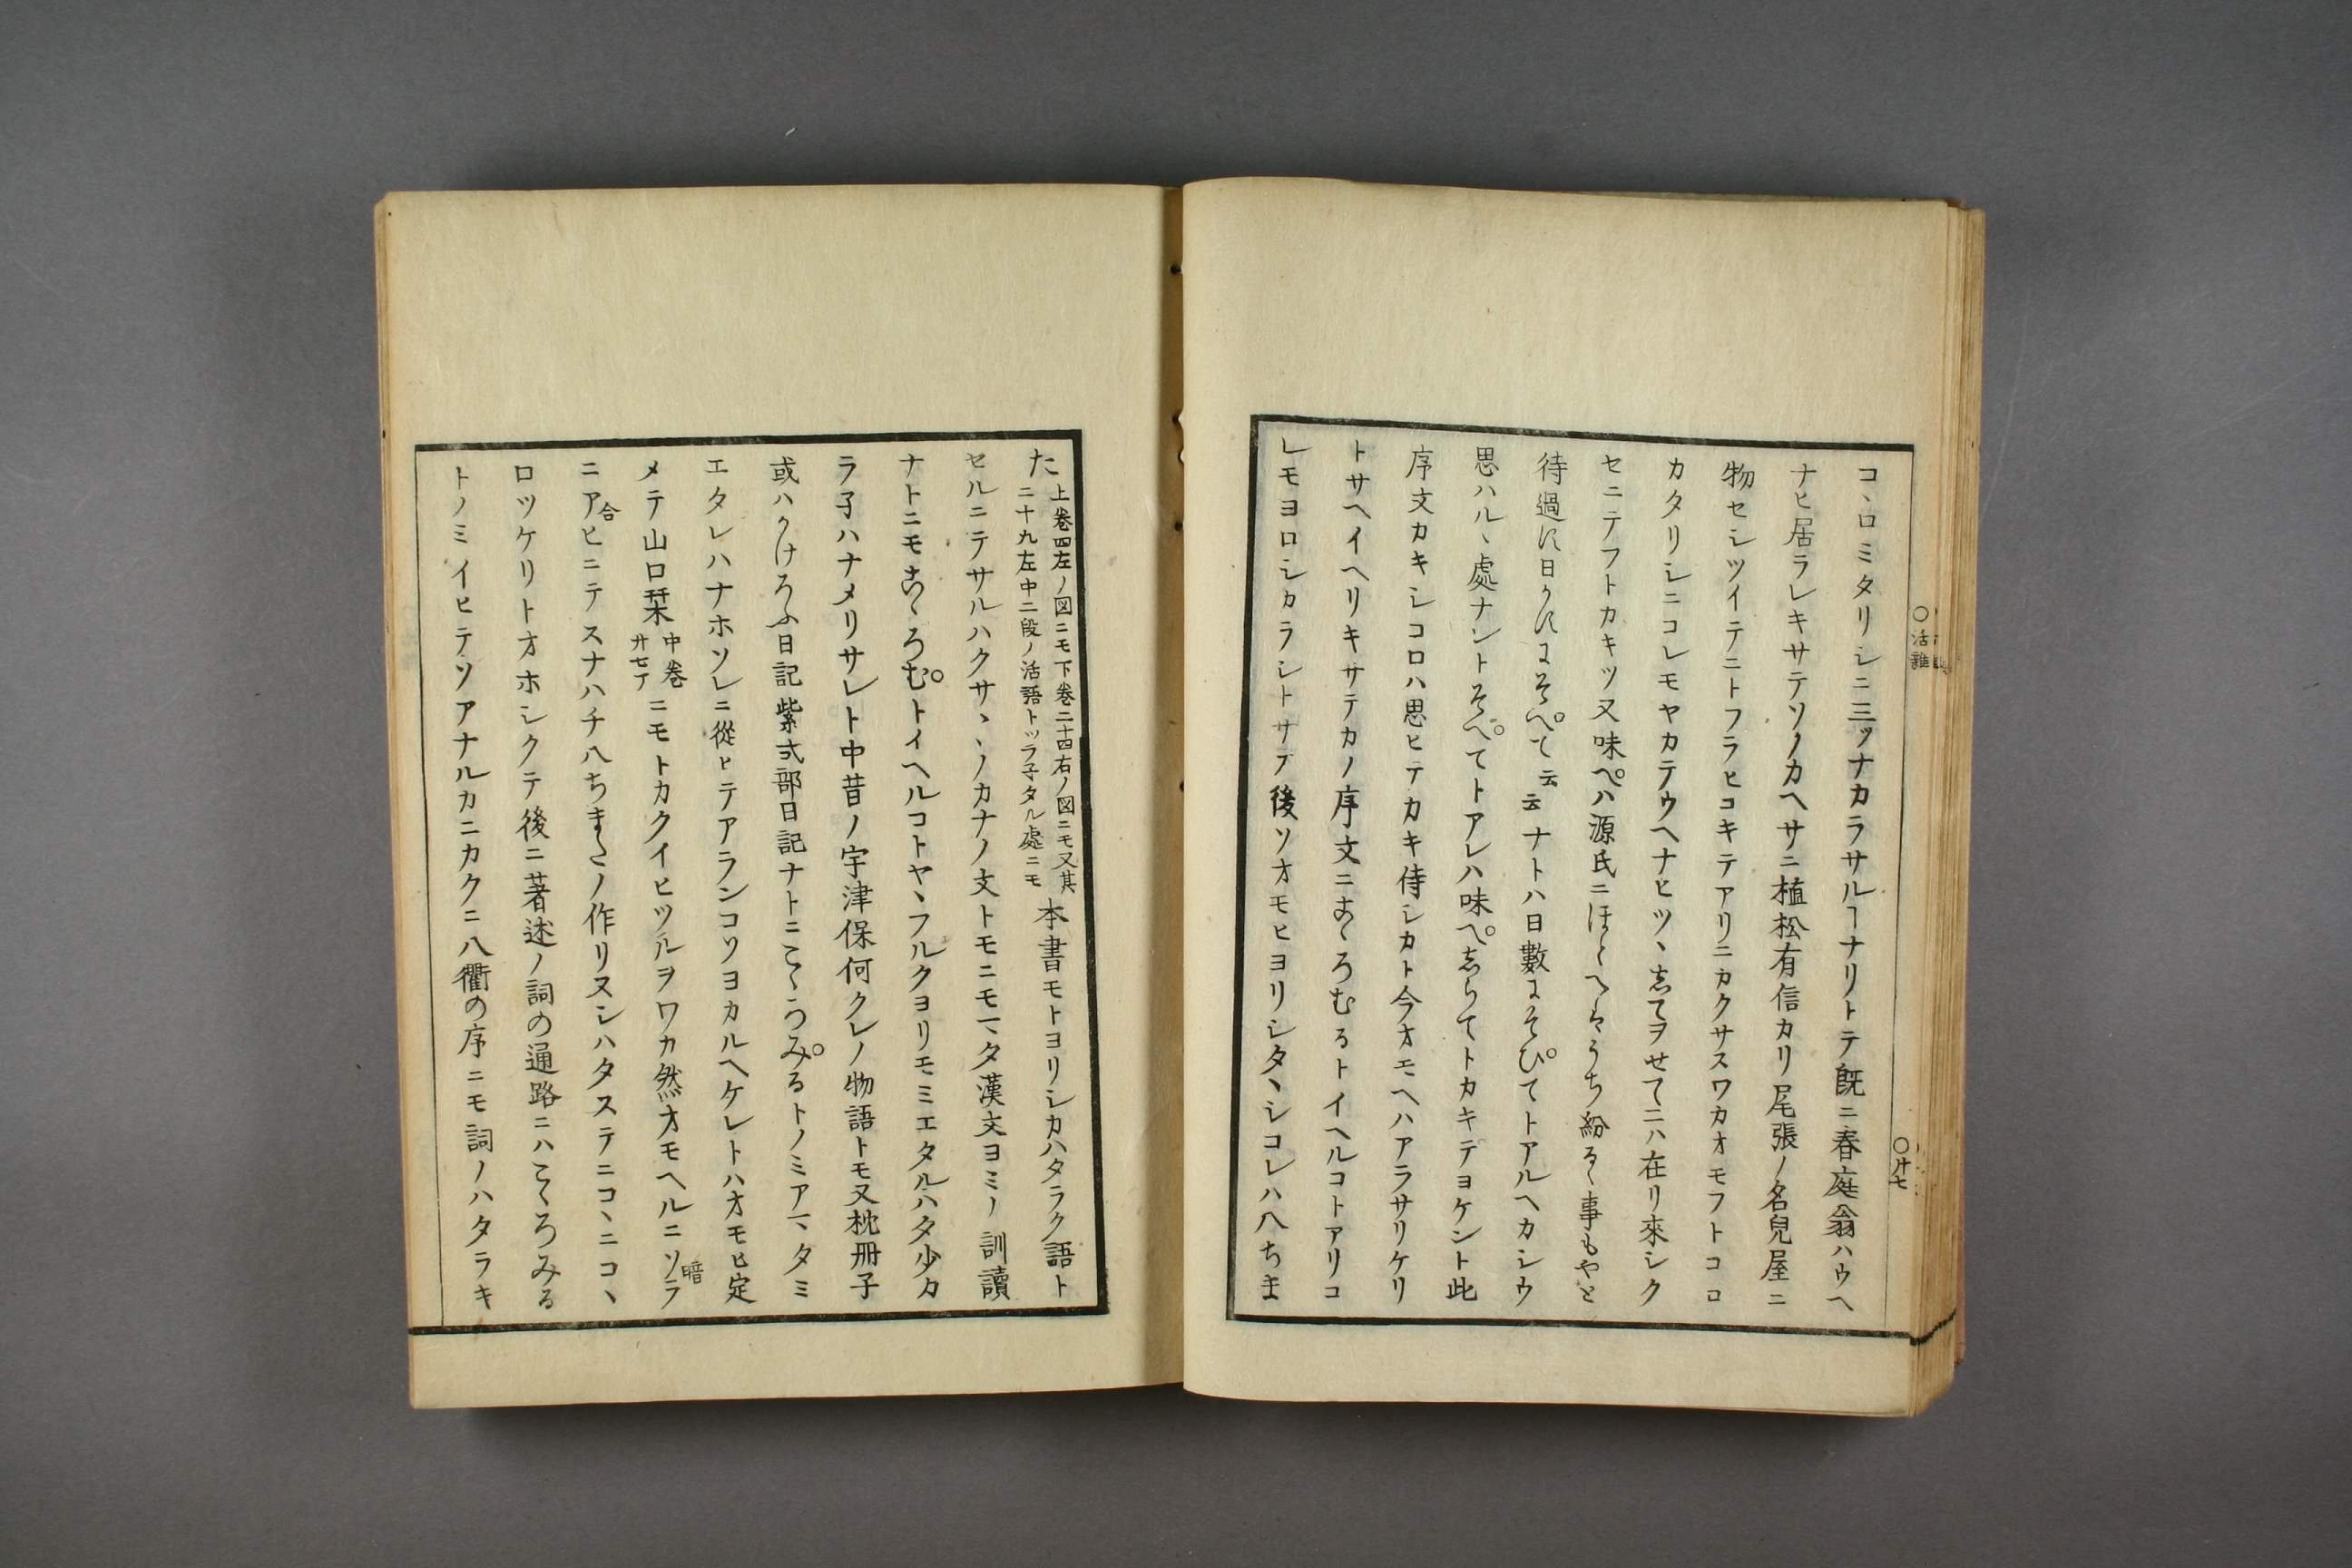 コヽロミタリシニ三ツナカラサルヿナリトテ既ニ春庭翁ハウヘ
ナヒ居ラレキサテソノカヘサニ植松有信カリ尾張ノ名兒屋ニ
物セシツイテニトフラヒコキテアリニカクサスワカオモフトココ
カタリシニコレモヤカテウヘナヒツヽ志てヲせてニハ在リ來シク
セニテフトカキツ又味ペハ源氏ニほとへはうち紛るゝ事もやと
待過に日かにまそへ゜て云云ナトハ日數まそひ゜てトアルヘカシウ
思ハルヽ處ナントそへ゜てトアレハ味へ゜志らてトカキテヨケント此
序文カキシコロハ思ヒテカキ侍シカト今オモヘハアラサリケリ
トサヘイヘリキサテカノ序文ニこゝろむるトイヘルコトアリコ
レモヨロシカラシトサテ後ソオモヒヨリシタヽシコレハ八ちま
た上卷四左ノ図ニモ下卷二十四右ノ図ニモ又其
ニ十九左中二段ノ活語トツラ子タル處ニモ
本書モトヨリシカハタラク語ト
セルニテサルハクサヽヽノカナノ文トモニモマタ漢文ヨミノ訓讀
ナトニモこゝろむ゜トイヘルコトヤヽフルクヨリモミエタルハタ少カ
ラ子ハナメリサレト中昔ノ宇津保何クレノ物語トモ又枕冊子
或ハかけろふ日記紫式部日記ナトニこゝろみ゜るトノミアマタミ
エタレハナホソレニ從ヒテアランコソヨカルヘケレトハオモヒ定
メテ山口栞中卷廿七丁ニモトカクイヒツルヲワカ然オモヘルニソラ暗
ニアヒ合ニテスナハチ八ちまたノ作リヌシハタステニコヽニコヽ
ロツケリトオホシクテ後ニ著述ノ詞の通路ニハこゝろみる
トノミイヒテソアナルカニカクニ八衢の序ニモ詞ノハタラキ
○活雜
○廿七